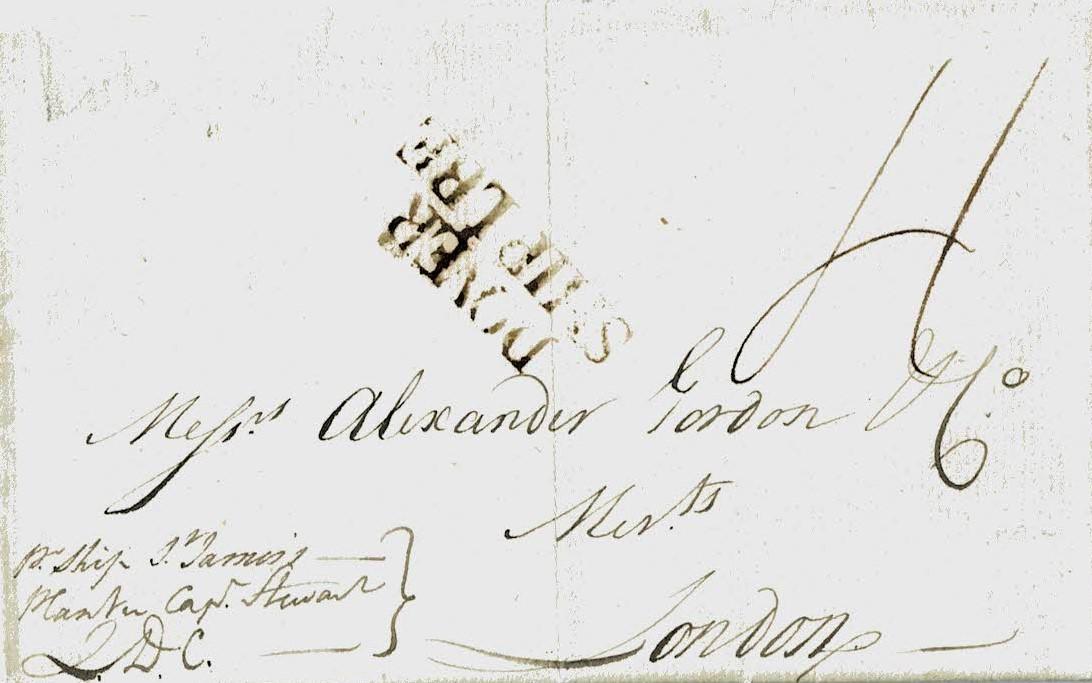 DOVER
SHIP LRE
H
Messrs Alexander Gordon & Co
Mer.ts
London
pr Ship St Jamess
Planter Capt. Stewart
Q.D.C.